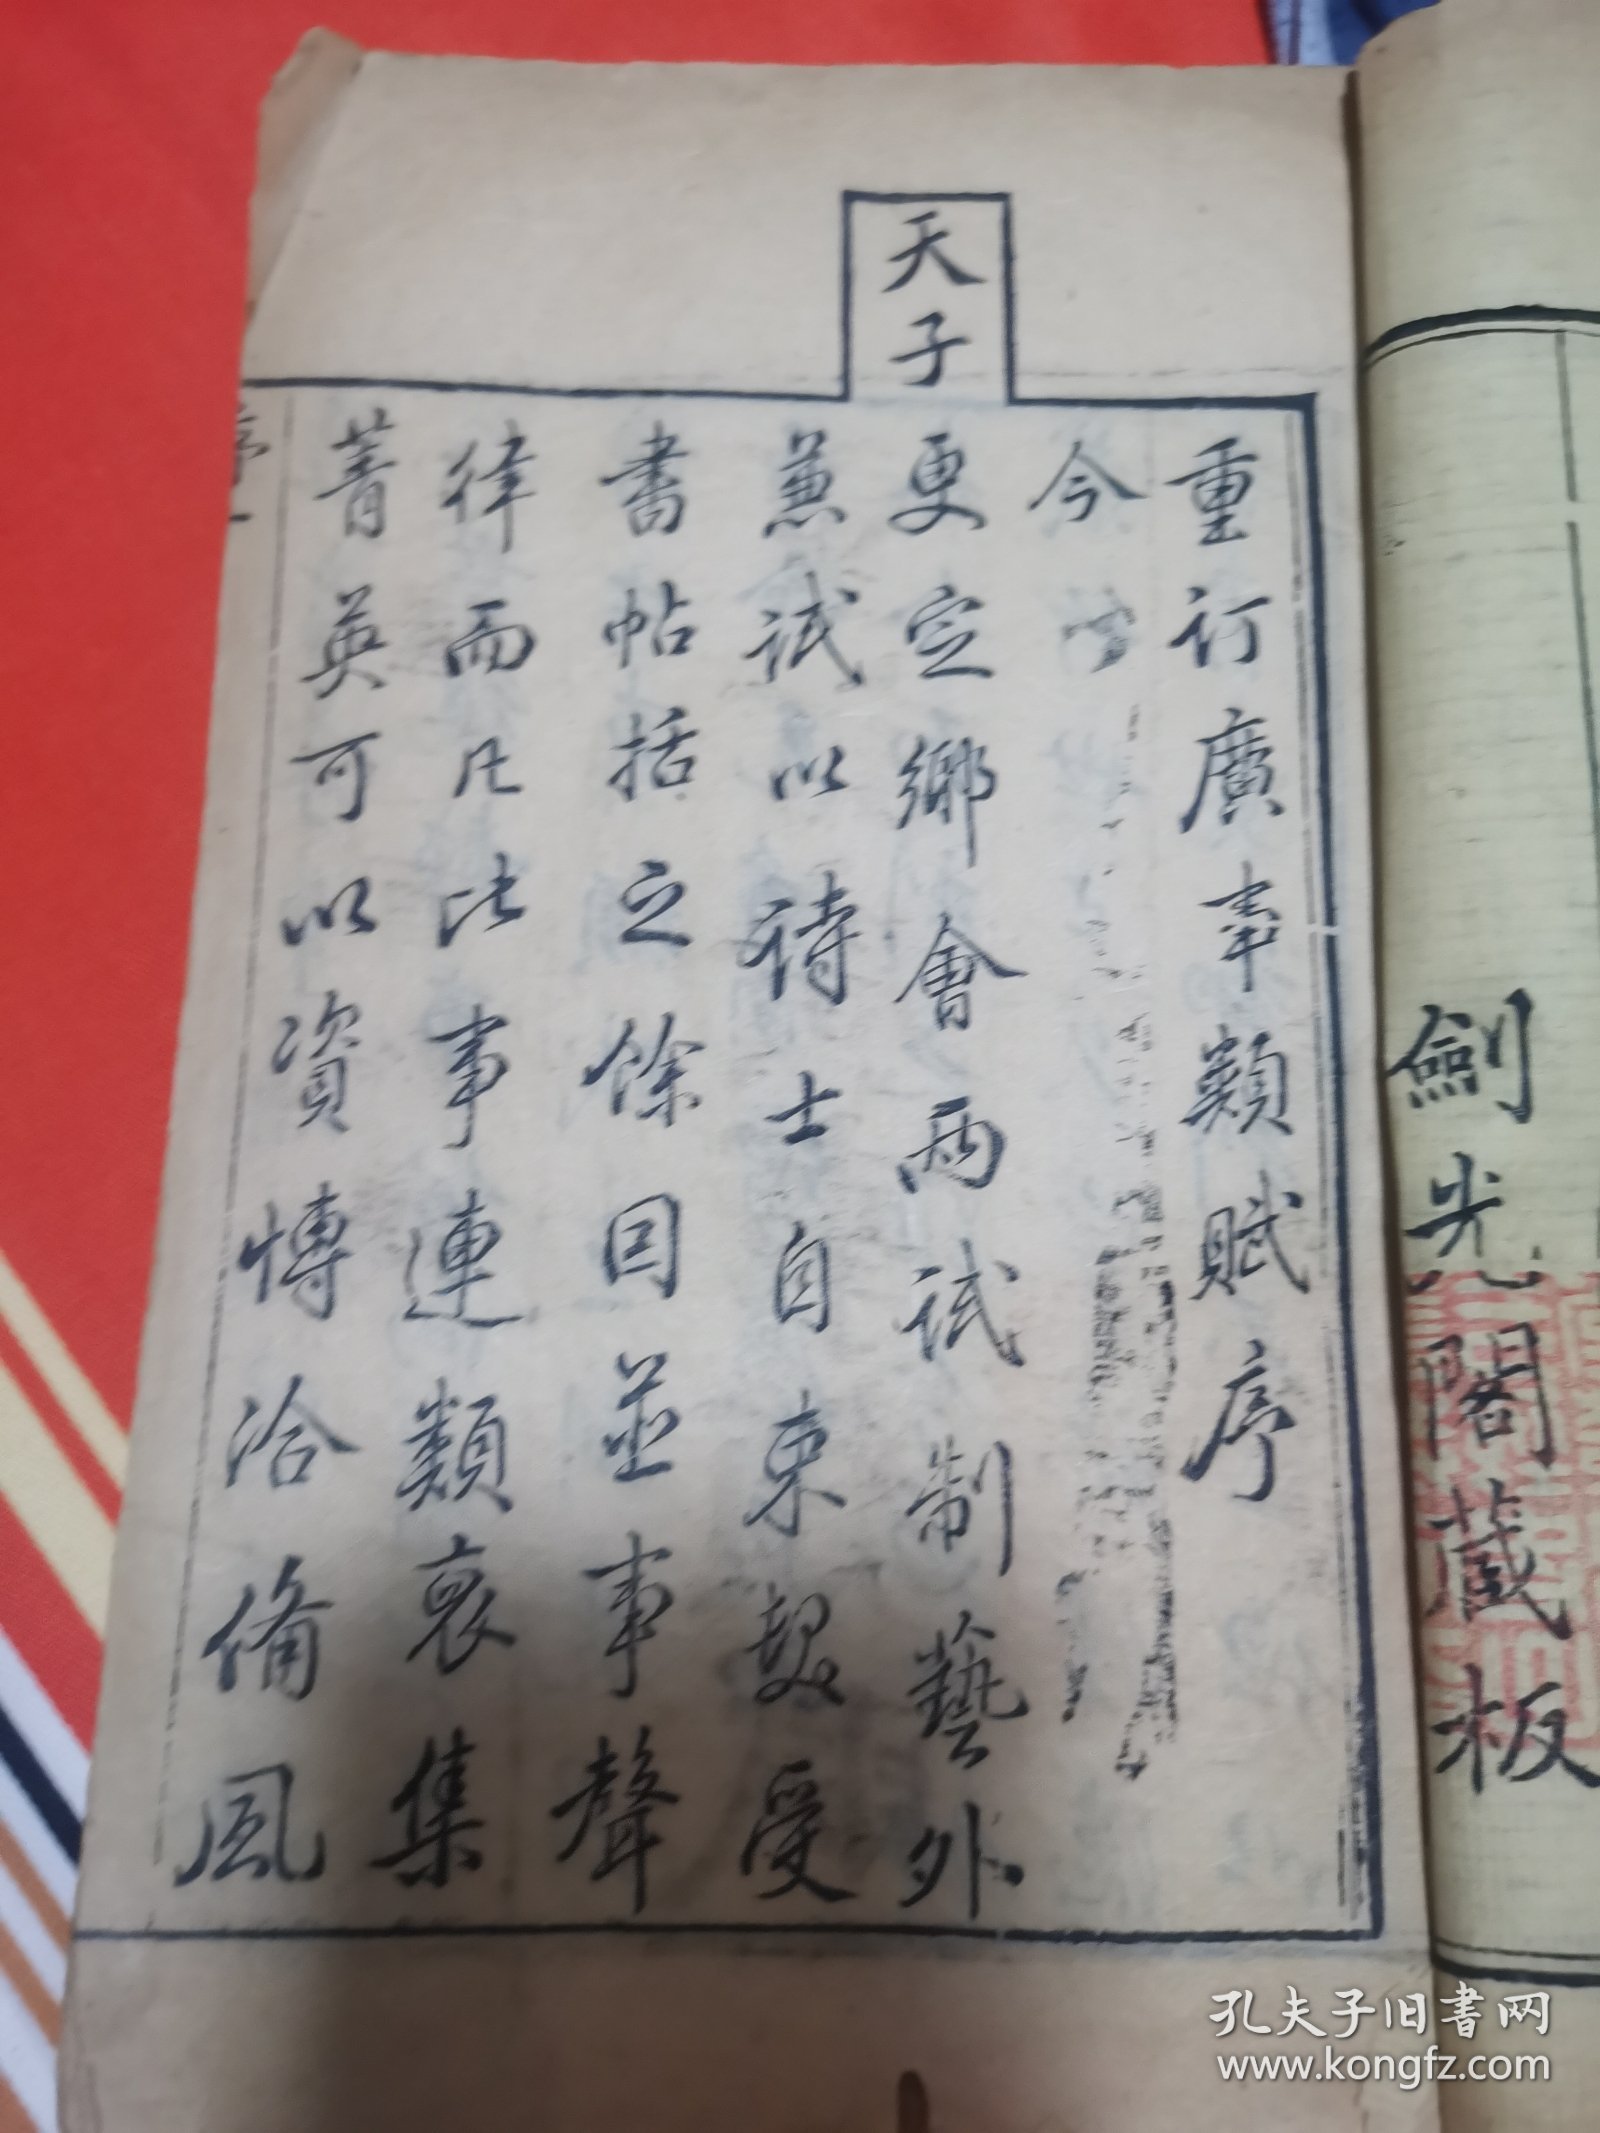 劍光閣藏板
重訂廣事類賦序
今
天子
更定鄉會兩試制藝外
兼試以詩士自束髮受
書帖括之餘因並事聲
律而凡比事連類裒集
菁英可以資博洽備風
序
一
孔夫子旧书网
www.kongfz.com